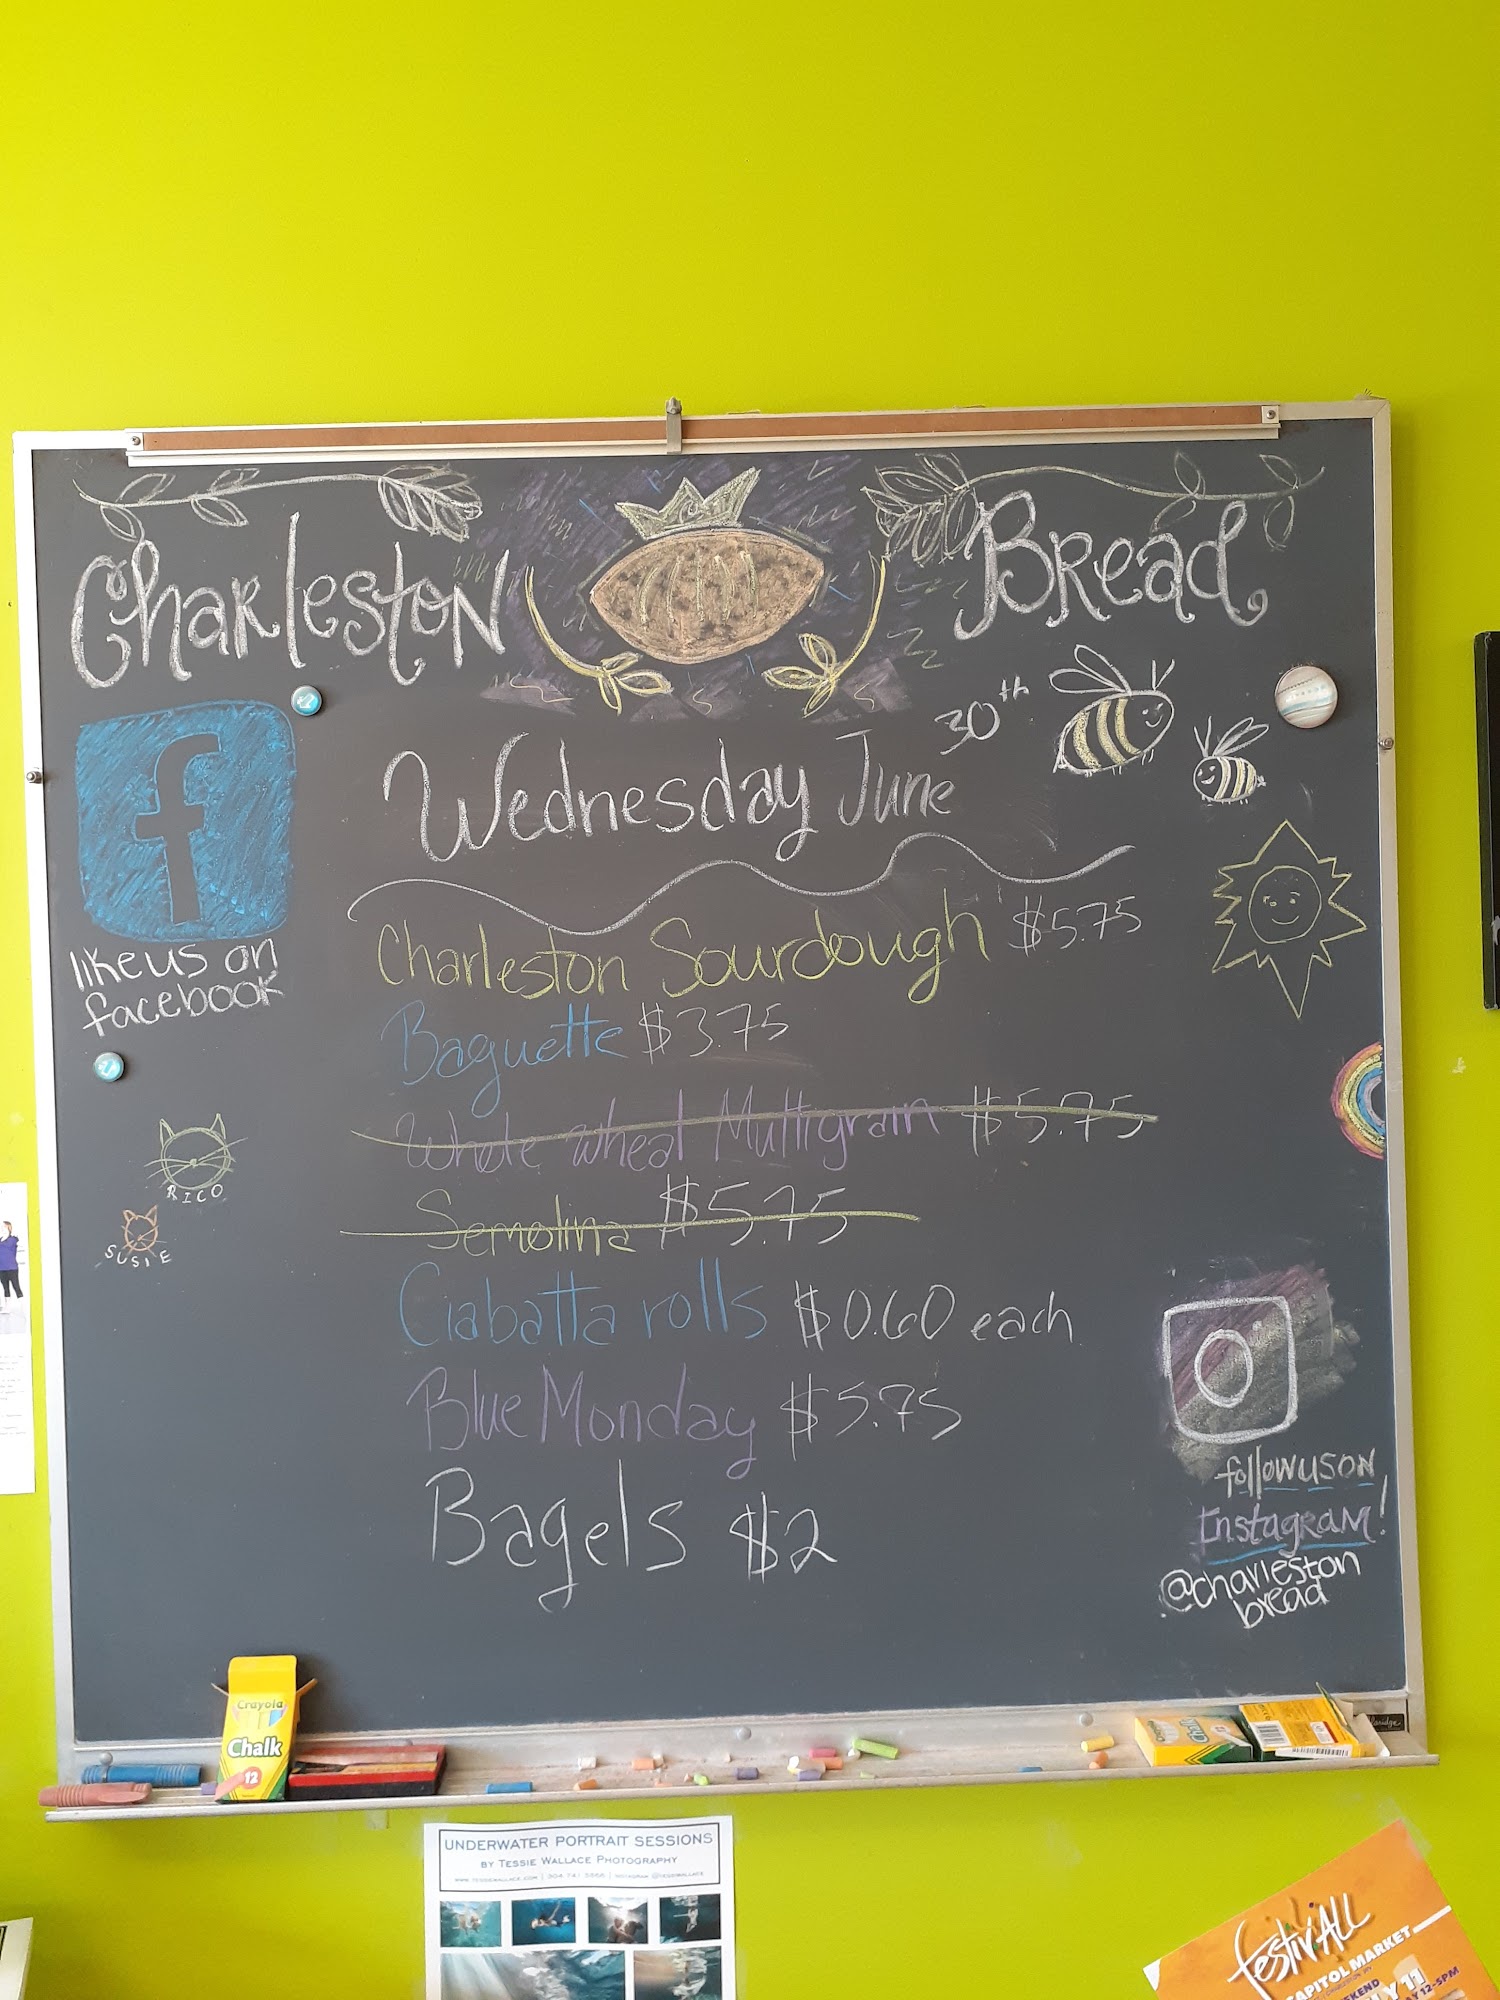 Charleston Bread
Wednesday June 30th
f
like us on
facebook
Charleston Sourdough $5.75
Baguette $3.75
Whole wheat Multigrain $5.75
Semolina $5.75
Ciabatta rolls $0.60 each
Blue Monday $5.75
Bagels $2
RICO
SUSIE
follow us on
Instagram!
@charleston
bread
Crayola
Chalk
12
UNDERWATER PORTRAIT SESSIONS
BY TESSIE WALLACE PHOTOGRAPHY
festivALL
CAPITOL MARKET
12-5PM